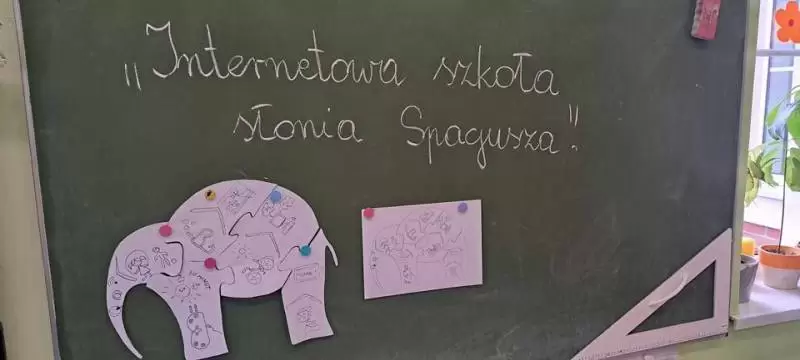 „Internetowa szkoła
słonia Spagusza".